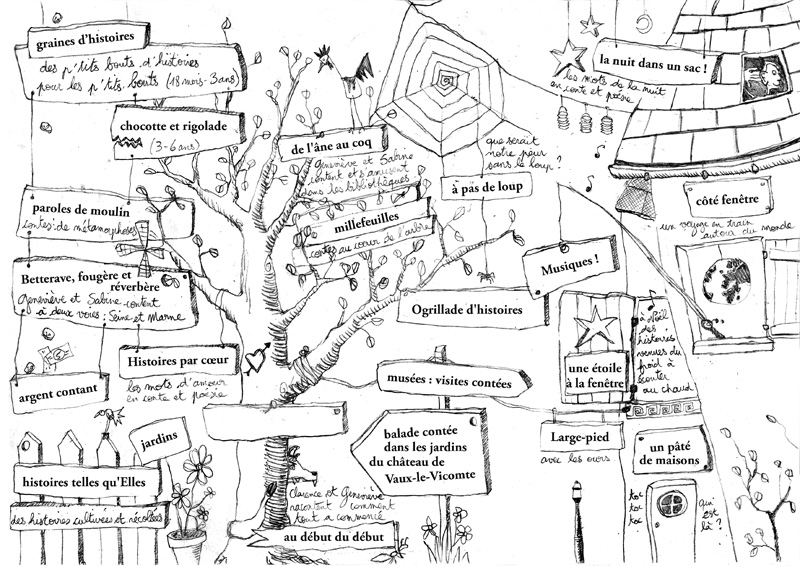 graines d'histoires
des p'tits bouts d'histoires
pour les p'tits bouts (18 mois-3 ans)
chocotte et rigolade
(3-6 ans)
paroles de moulin
contes de métamorphoses
Betterave, fougère et
réverbère
Geneviève et Sabine content
à deux voies : Seine et Marne
argent contant
Histoires par cœur
les mots d'amour
en conte et poésie
jardins
histoires telles qu'Elles
des histoires cultivées et récoltées
de l'âne au coq
Geneviève et Sabine
content et s'amusent
dans les bibliothèques
millefeuilles
contes au cœur de l'arbre
que serait
notre peur
sans le loup ?
à pas de loup
Musiques !
Ogrillade d'histoires
musées : visites contées
balade contée
dans les jardins
du château de
Vaux-le-Vicomte
Clarence et Geneviève
racontent comment
tout a commencé
au début du début
la nuit dans un sac !
les mots de la nuit
en conte et poésie
côté fenêtre
un voyage en train
autour du monde
une étoile
à la fenêtre
à Noël
des
histoires
venues du
froid à
écouter
au chaud
Large-pied
avec les ours
un pâté
de maisons
toc
toc
toc
qui
est
là ?